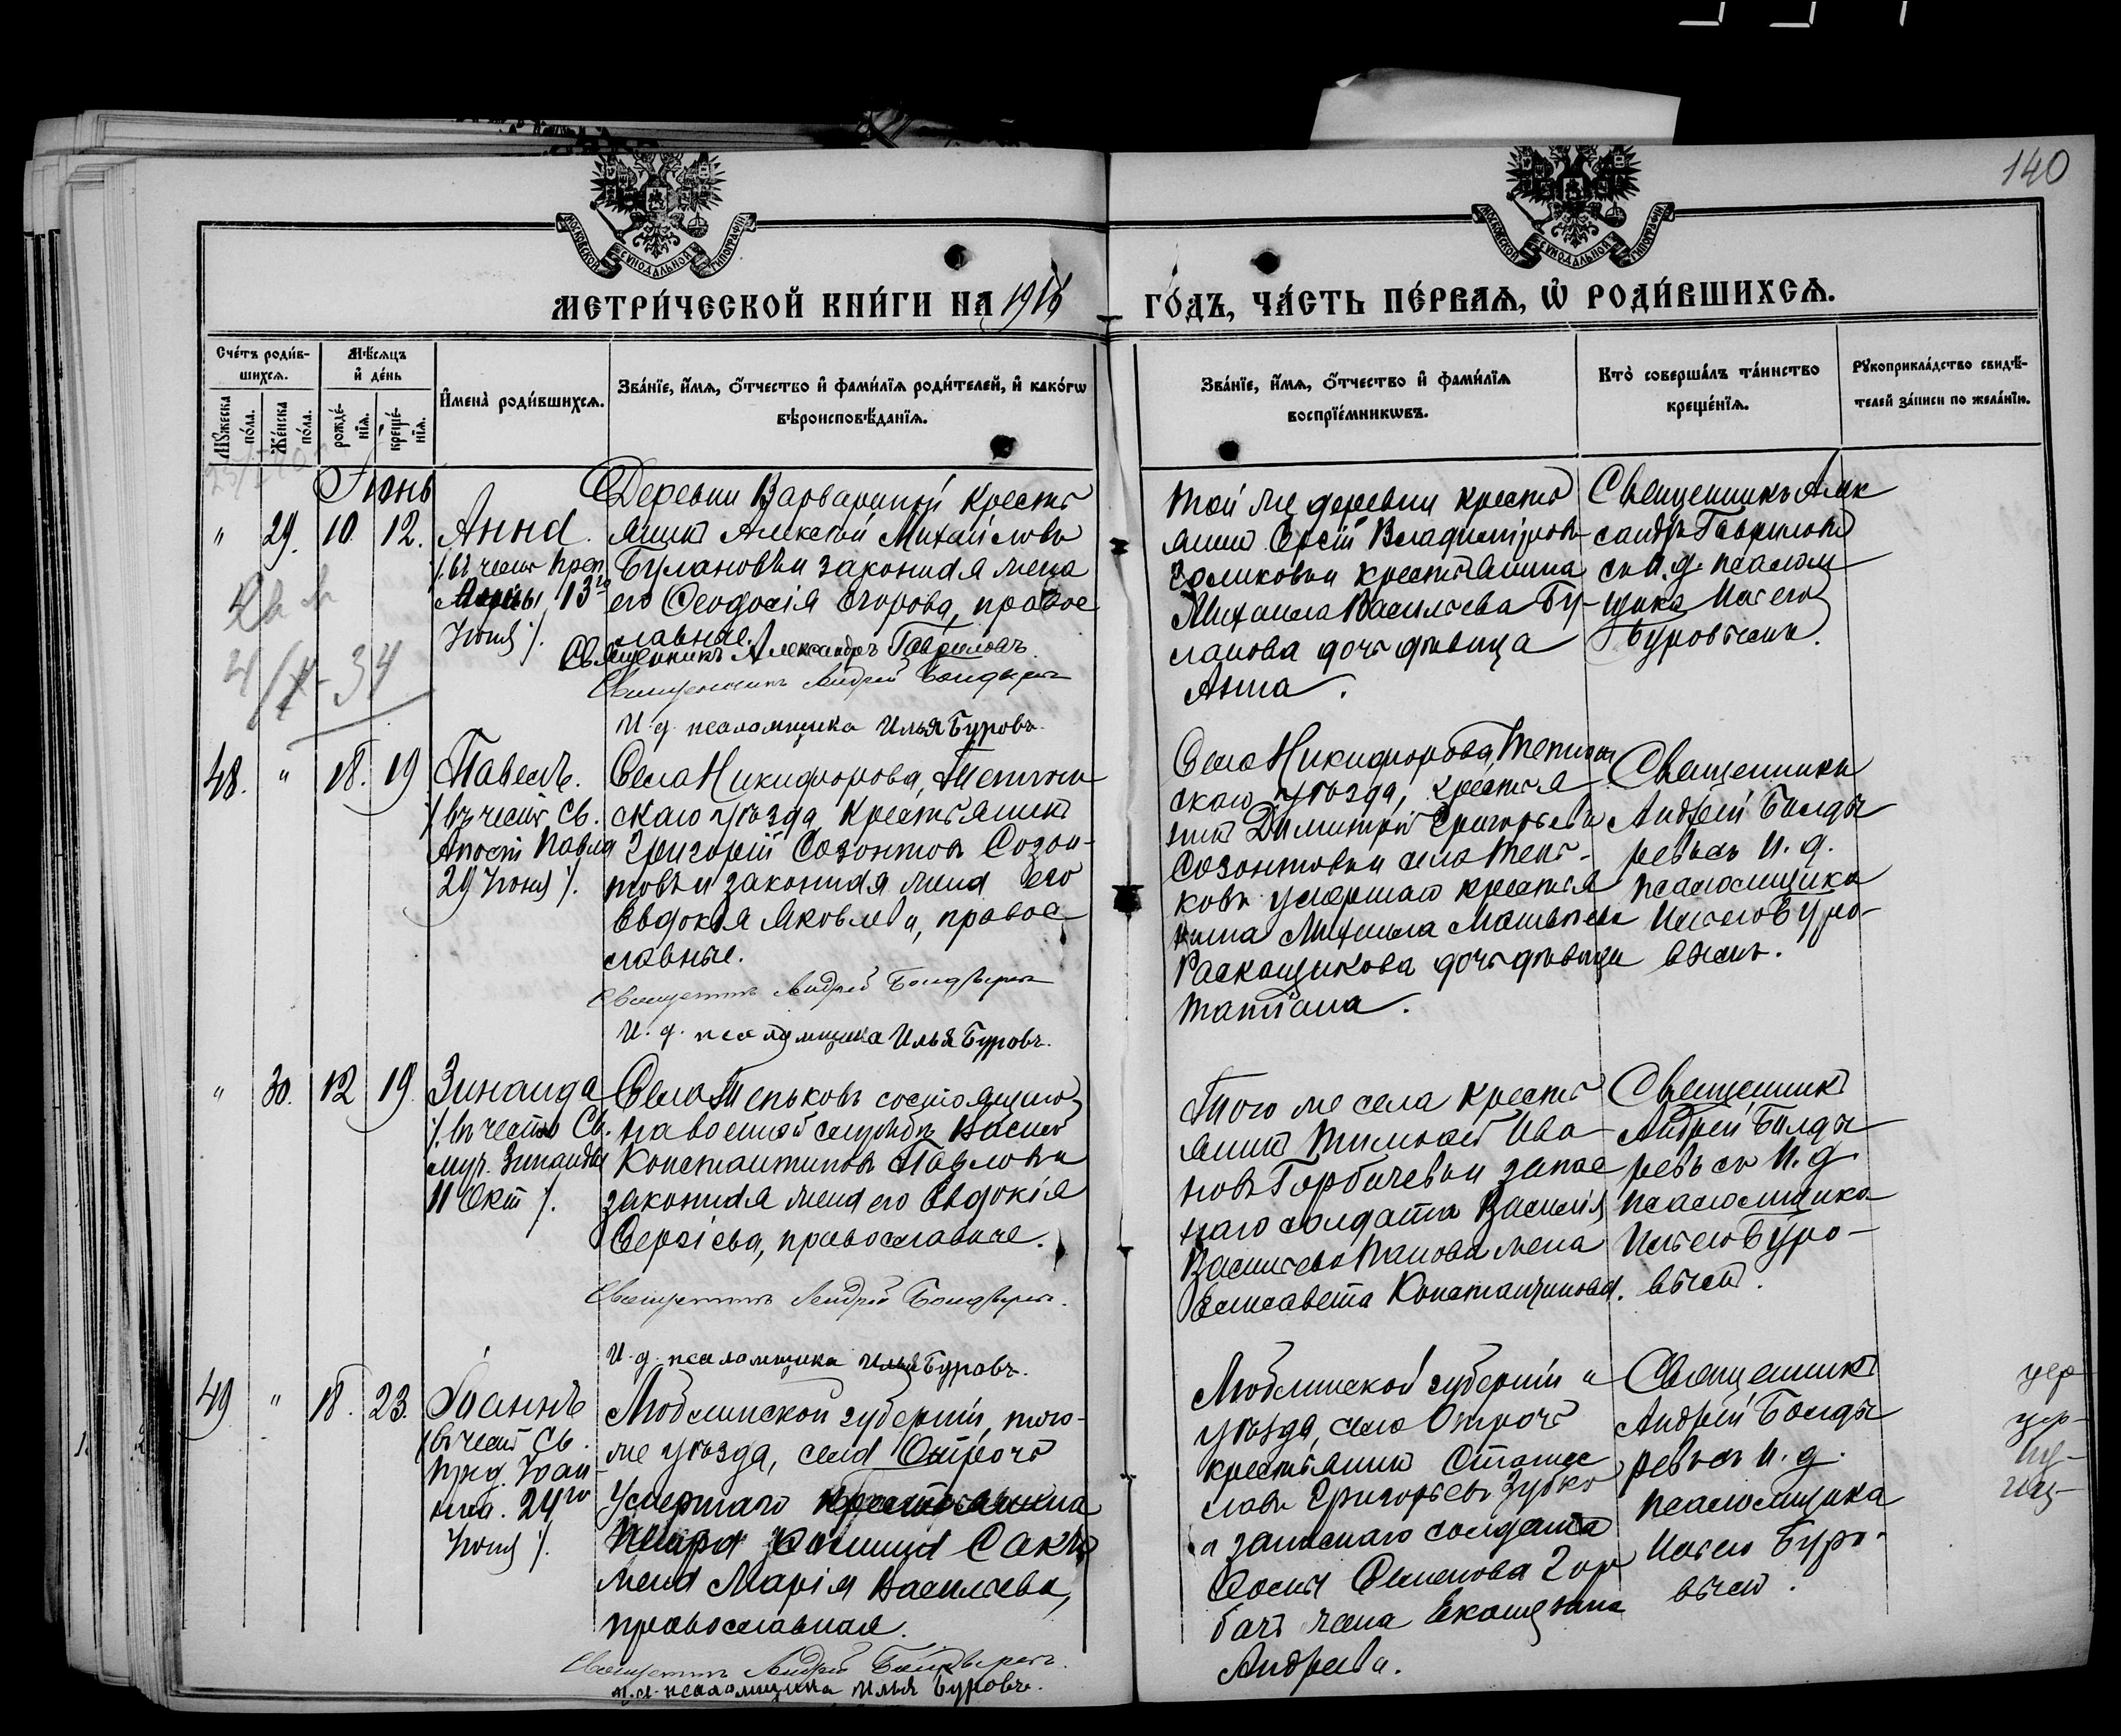 140
МОСКОВСКОЙ СѴНОДАЛЬНОЙ ТИПОГРАФІИ
МОСКОВСКОЙ СѴНОДАЛЬНОЙ ТИПОГРАФІИ
МЕТРИ́ЧЕСКОЙ КНИ́ГИ НА 1916
ГО́ДЪ, ЧА́СТЬ ПЕ́РВАѦ, Ѽ РОДИ́ВШИХСѦ.
Сче́тъ роди́в-
шихсѧ.
Мꙋ́жеска по́ла.
Же́нска по́ла.
Мѣ́сѧцъ и҆ де́нь
рожде́-нїѧ.
креще́-нїѧ.
И҆мена̀ роди́вшихсѧ.
Зва́нїе, и҆́мѧ, ѻ҆́тчество и҆ фами́лїѧ роди́телей, и҆ како́гѡ
вѣроисповѣ́данїѧ.
Зва́нїе, и҆́мѧ, ѻ҆́тчество и҆ фами́лїѧ
воспрїе́мникѡвъ.
Кто̀ соверша́лъ та́инство
креще́нїѧ.
Рꙋкоприкла́дство свидѣ́-
телей за́писи по жела́нїю.
Іюнь
" 29. 10. 12.
Анна.
/. въ честь преп.
Анны 13го
Іюня /.
Деревни Варвариной кресть
янинъ Алексѣй Михайловъ
Булановъ и законная жена
его Ѳеодосія Егорова, право
славные.
Священникъ Александръ Гавриловъ.
Священникъ Андрей Болдыревъ
И. д. псаломщика Илья Буровъ.
Той же деревни кресть
янинъ Сергѣй Владиміровъ
и крестьянина
Михаила Васильева Бу-
ланова дочь дѣвица
Анна.
Священникъ Алек
сандръ Гавриловъ
съ И. д. псалом
щика Ильею
Буровымъ.
34
48. " 18. 19
Павелъ.
/. въ честь Св.
Апост. Павла
29 Іюня /.
Села Никифорова,
скаго уѣзда крестьянинъ
Григорій Созонтовъ Созон-
товъ и законная жена его
Евдокія Яковлева, право
славные.
Священникъ Андрей Болдыревъ
И. д. псаломщика Илья Буровъ.
Села Никифорова,
скаго уѣзда, крестья
нинъ Димитрій Григорьевъ
Созонтовъ и села Тень-
ковъ умершаго крестья
нина Михаила
Раскащикова дочь дѣвица
Татіана.
Священникъ
Андрей Болды
ревъ съ И. д.
псаломщика
Ильею Буро-
вымъ.
" 30. 12 19.
Зинаида
/. въ честь Св.
муч. Зинаиды
11 Окт /.
Села Теньковъ состоящаго
на военной службѣ Василія
Константинова Павлова
законная жена его Евдокія
Сергіева, православные.
Священникъ Андрей Болдыревъ.
И. д. псаломщика Илья Буровъ.
Того же села кресть
янинъ Тимоѳей Ива
новъ Горбачевъ и запас
наго солдата Василія
Васильева Панова жена
Елисавета Константинова.
Священникъ
Андрей Болды
ревъ съ И. д.
псаломщика
Ильею Буро-
вымъ.
49 " 18. 23.
Іоаннъ
/. въ честь Св.
Прд. Іоан
на. 24го
Іюня /.
Люблинской губерніи, того-
же уѣзда, села Отрочъ
умершаго крестьянина
жена Марія Васильева,
православная.
Священникъ Андрей Болдыревъ.
И. д. псаломщика Илья Буровъ.
Люблинской губерніи и
уѣзда, села Отрочъ
крестьянинъ Станис
лавъ Григорьевъ Зубко
и запаснаго солдата
Семенова Гор
бачъ жена Екатерина
Андреева.
Священникъ
Андрей Болды
ревъ съ И. д.
псаломщика
Ильею Буро-
вымъ.